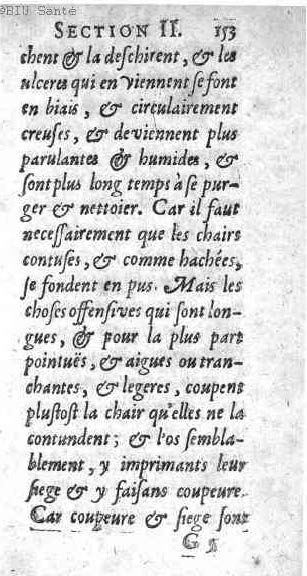 ©BIU Santé
SECTION II. 153
chent & la deschirent, & les
ulceres qui en viennent se font
en biais, & circulairement
creuses, & deviennent plus
purulantes & humides, &
sont plus long temps à se pur-
ger & nettoier. Car il faut
necessairement que les chairs
contuses, & comme hachées,
se fondent en pus. Mais les
choses offensives qui sont lon-
gues, & pour la plus part
pointuës, & aigues ou tran-
chantes, & legeres, coupent
plustost la chair qu'elles ne la
contundent; & l'os sembla-
blement, y imprimants leur
siege & y faisans coupeure.
Car coupeure & siege sont
G